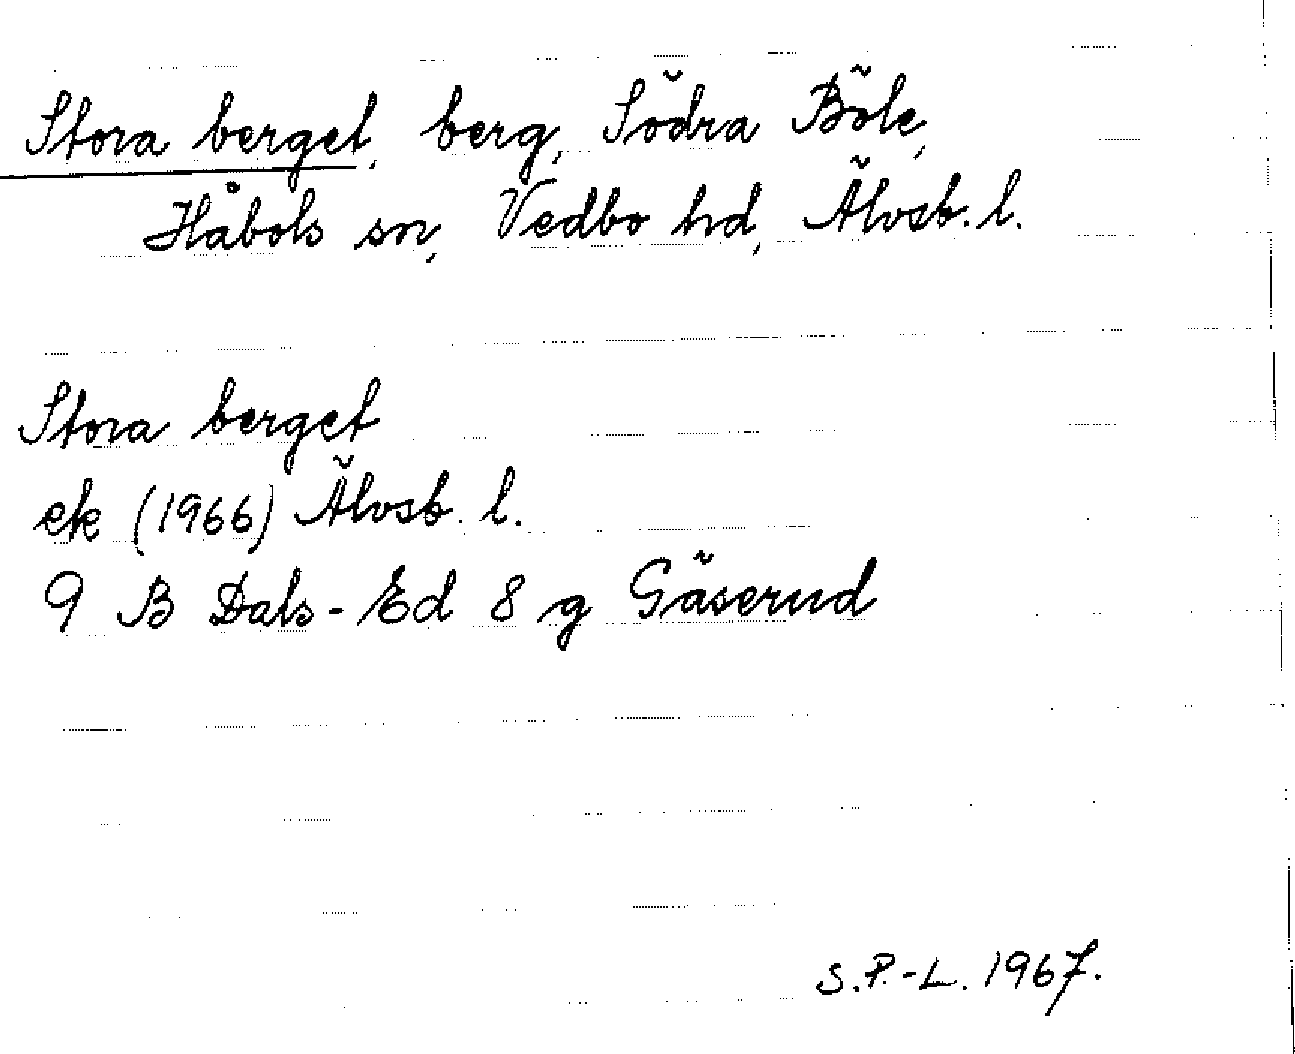 Stora berget, berg, Södra Böle,
Håbols sn, Vedbo hd, Älvsb. l.
Stora berget
ek (1966) Älvsb. l.
9 B Dals-Ed 8 g Gäserud
S.P.-L. 1967.